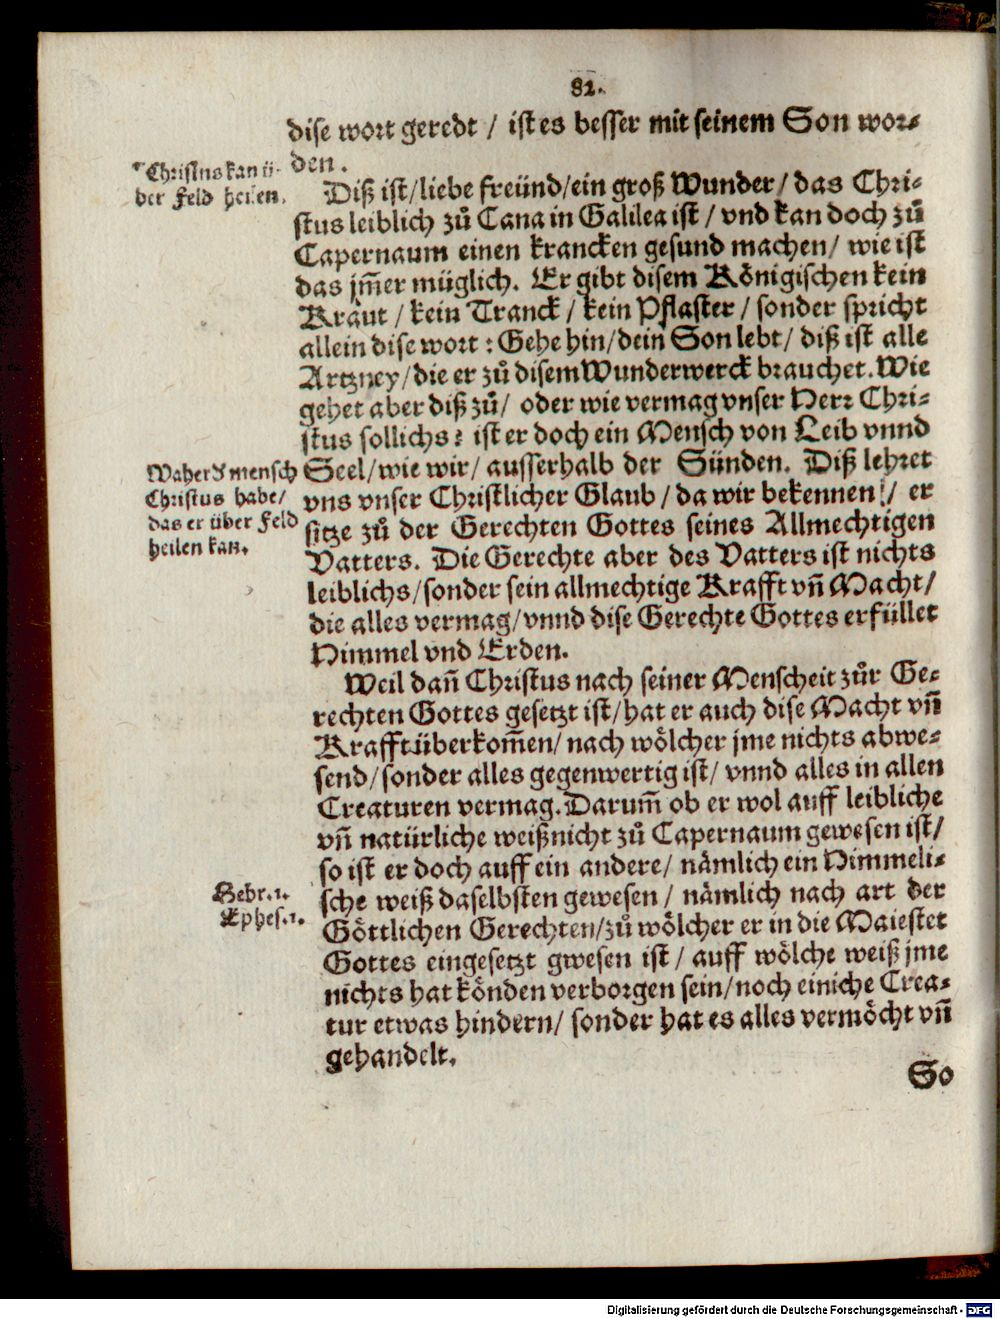 82.
dise wort geredt / ist es besser mit seinem Son wor-
den.
Christus kan ü-
ber Feld heilen.
Diß ist/liebe freünd/ein groß Wunder/ das Chri-
stus leiblich zů Cana in Galilea ist / vnd kan doch zů
Capernaum einen krancken gesund machen/ wie ist
das jm̃er müglich. Er gibt disem Königischen kein
Kraut / kein Tranck / kein Pflaster / sonder spricht
allein dise wort : Gehe hin/dein Son lebt/ diß ist alle
Artzney/die er zů disem Wunderwerck brauchet. Wie
gehet aber diß zů/ oder wie vermag vnser Herr Chri-
stus sollichs? ist er doch ein Mensch von Leib vnnd
Seel/wie wir/ ausserhalb der Sünden. Diß lehret
Waher d mensch
Christus habe/
das er über Feld
heilen kan.
vns vnser Christlicher Glaub / da wir bekennen / er
sitze zů der Gerechten Gottes seines Allmechtigen
Vatters. Die Gerechte aber des Vatters ist nichts
leiblichs/sonder sein allmechtige Krafft vñ Macht/
die alles vermag/vnnd dise Gerechte Gottes erfüllet
Himmel vnd Erden.
Weil dañ Christus nach seiner Menscheit zůr Ge-
rechten Gottes gesetzt ist/hat er auch dise Macht vñ
Krafft überkom̃en/ nach wölcher jme nichts abwe-
send/sonder alles gegenwertig ist/ vnnd alles in allen
Creaturen vermag. Darum̃ ob er wol auff leibliche
vñ natürliche weiß nicht zů Capernaum gewesen ist/
so ist er doch auff ein andere/ nämlich ein Himmeli-
sche weiß daselbsten gewesen / nämlich nach art der
Hebr. 1.
Ephes. 1.
Göttlichen Gerechten/zů wölcher er in die Maiestet
Gottes eingesetzt gwesen ist / auff wölche weiß jme
nichts hat könden verborgen sein/noch einiche Crea-
tur etwas hindern/ sonder hat es alles vermöcht vñ
gehandelt.
So
Digitalisierung gefördert durch die Deutsche Forschungsgemeinschaft - DFG